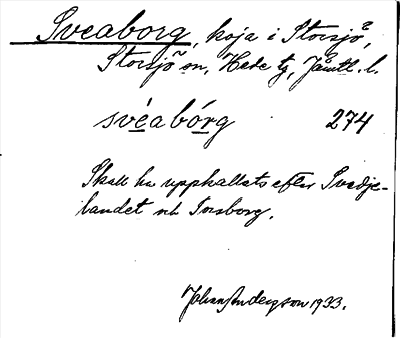 Sveaborg, koja i Storsjö,
Storsjö sn, Hede tg, Jämtl. l.
svéabórg 274
Skall ha upphallats efter Svedje-
landet och Torsborg.
Johan Anderzson 1933.